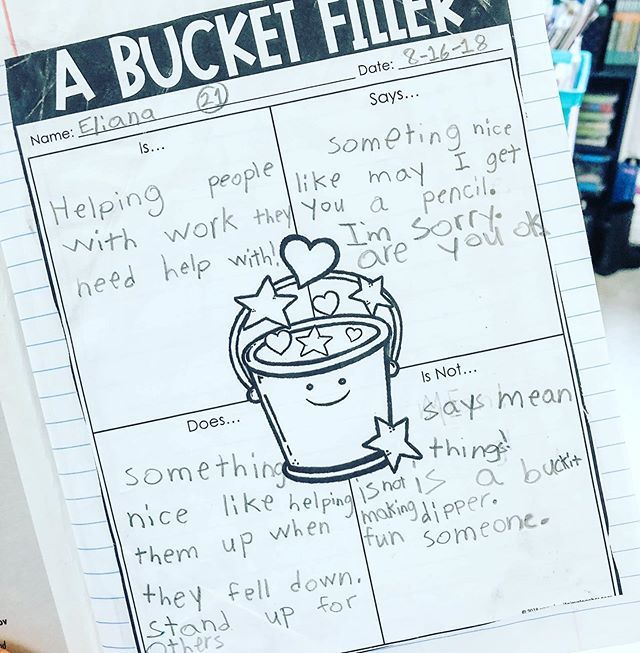 A BUCKET FILLER
Name: Eliana 21 Date: 8-16-18
Is...
Helping people
with work they
need help with!
Says...
someting nice
like may I get
you a pencil.
I'm sorry.
are you ok
Does...
something
nice like helping
them up when
they fell down.
stand up for
others
Is Not...
says mean
things!
is not is a buckit
making dipper.
fun someone.